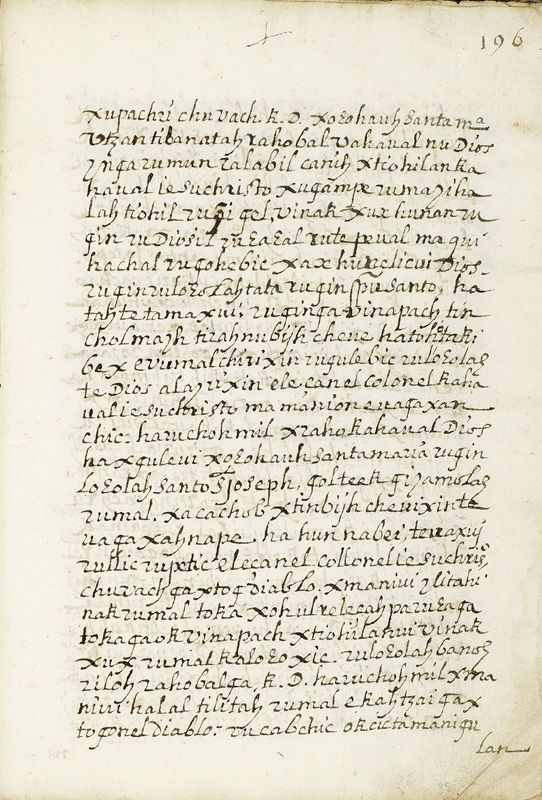 196
xupachij chuvach. k. D. xoꜫohauh santa mᵃ
vtzan tibanatah rahobal vahaual nu Dios
ynga rumun ralabil canih xtiohilan ka
haual iesuchristo xugampe rumayiha
lah tiohil rugi gel, vinak xux hunan ru
gin ru Diosil
hachal rugohebic xax hunelicui Dios.
rugin ruloꜫolah tata rugin spu santo, ha
tahte tamaxui, ruginga vinapach tin
cholmajh tirahnubijh cheve
bex evumal chirixin rugulebic ruloꜫolaꜫ
te Dios alayrixin elecanel colonel kaha
ual iesuchristo mamanione vagaxan
chic. haruchohmil xrahokahaual Dios
haxgulevi xoꜫohauh santa maria rugin
loꜫolah santo S joseph, golteek giyamolaꜫ
rumal, xacachob xtinbijh chevixinte
vagaxahnape, ha hun nabei tevaxuj
rutlic ruxtic elecanel collonel iesuchrisᵒ
chuvachga xtog diablo. xmanivi
nak rumal toka xohulrelecah paruꜫaga
tokagaok vinapach xtiohilahui vinak
xux rumal kaloꜫoxic. ruloꜫolah banoꜫ
riloh rahobalga, k. D. haruchohmil xma
nivi halal tilitah rumal ekahtzaigax
togonel diablo: rucabchic okcictamanigu
lan